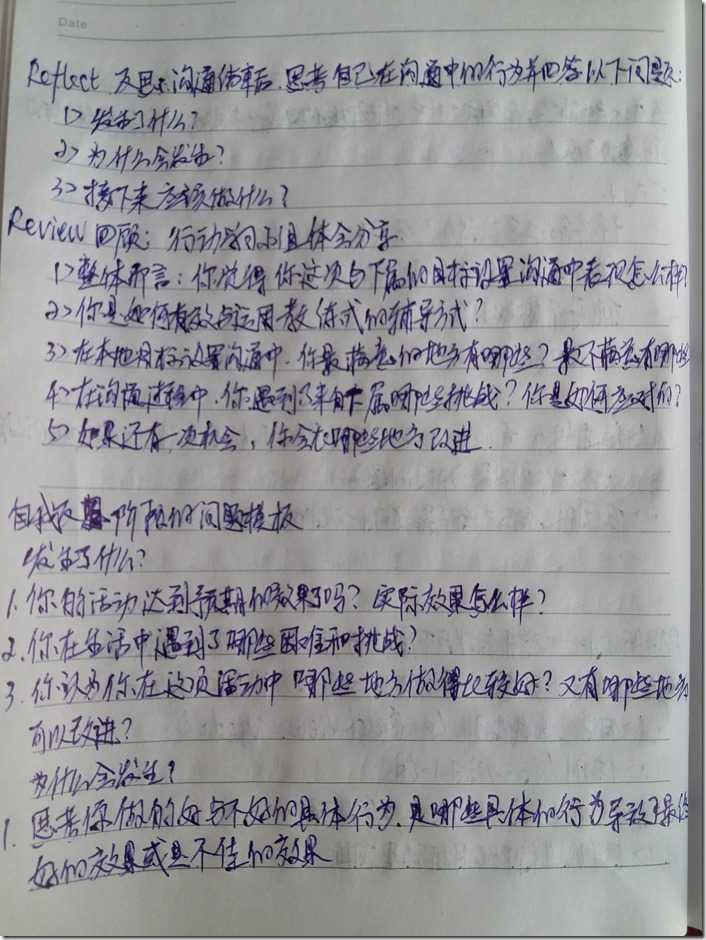 Date
Reflect 反思:沟通结束后,思考自己在沟通中的行为并回答以下问题:
1> 发生了什么?
2> 为什么会发生?
3> 接下来应该做什么?
Review 回顾:行动学习小组体会分享
1> 整体而言:你觉得你这次与下属的目标设置沟通中表现怎么样?
2> 你是如何有效与运用教练式的辅导方式?
3> 在本地目标设置沟通中,你最满意的地方有哪些?最不满意有哪些
4> 在沟通过程中,你遇到了来自下属哪些挑战?你是如何应对的?
5> 如果还有一次机会,你会在哪些地方改进
自我反思阶段的问题模板
发生了什么?
1. 你的活动达到预期的效果了吗?实际效果怎么样?
2. 你在生活中遇到了哪些困难和挑战?
3. 你认为你在这项活动中哪些地方做得比较好?又有哪些地方
可以改进?
为什么会发生?
1. 思考你做的好与不好的具体行为,是哪些具体的行为导致了最终
好的效果或是不佳的效果